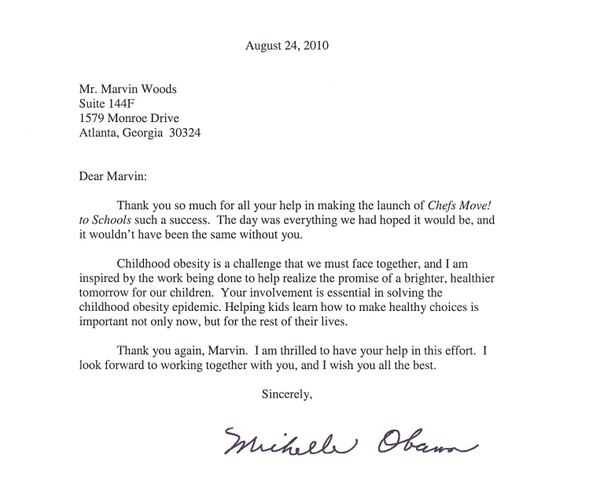 August 24, 2010
Mr. Marvin Woods
Suite 144F
1579 Monroe Drive
Atlanta, Georgia 30324
Dear Marvin:
Thank you so much for all your help in making the launch of Chefs Move!
to Schools such a success. The day was everything we had hoped it would be, and
it wouldn't have been the same without you.
Childhood obesity is a challenge that we must face together, and I am
inspired by the work being done to help realize the promise of a brighter, healthier
tomorrow for our children. Your involvement is essential in solving the
childhood obesity epidemic. Helping kids learn how to make healthy choices is
important not only now, but for the rest of their lives.
Thank you again, Marvin. I am thrilled to have your help in this effort. I
look forward to working together with you, and I wish you all the best.
Sincerely,
Michelle Obama